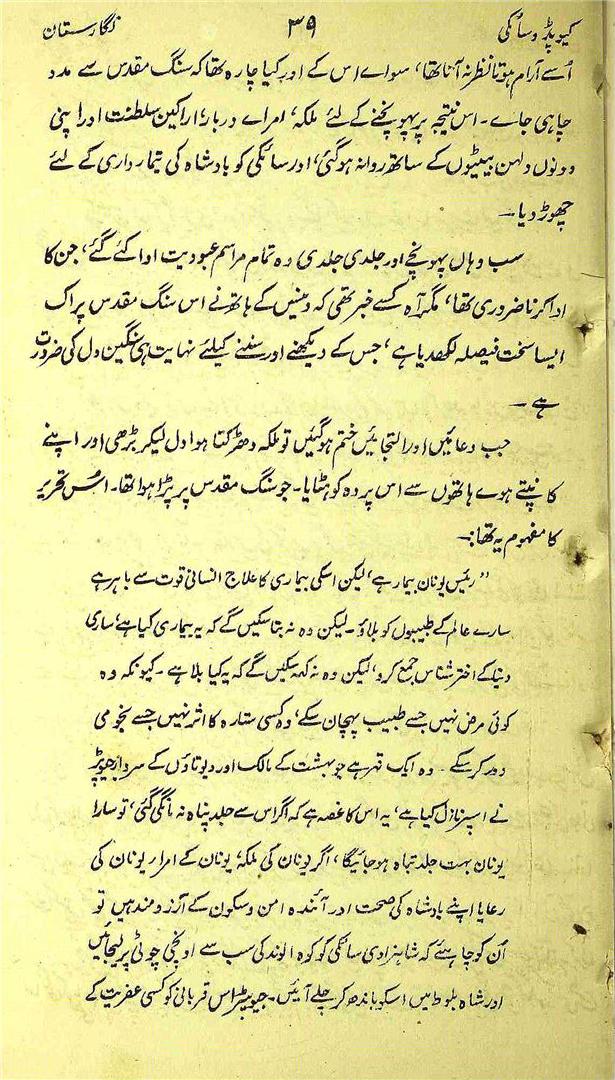 کیوپڈ و سائکی ۳۹ نگارستان
اُسے آرام ہوتا نظر نہ آتا تھا، سواے اس کے اور کیا چارہ تھا کہ سنگ مقدس سے مدد
چاہی جاے۔ اس نتیجہ پر پہونچنے کے لئے ملکہ، امراے دربار، اراکین سلطنت اور اپنی
دونوں دلہن بیٹیوں کے ساتھ روانہ ہوگئی، اور سائکی کو بادشاہ کی تیمارداری کے لئے
چھوڑ دیا۔
سب وہاں پہونچے اور جلدی جلدی وہ تمام مراسم عبودیت ادا کئے گئے، جن کا
ادا کرنا ضروری تھا، مگر آہ کسے خبر تھی کہ وینس کے ہاتھ نے اس سنگ مقدس پر اک
ایسا سخت فیصلہ لکھدیا ہے، جس کے دیکھنے اور سننے کیلئے نہایت ہی سنگین دل کی ضرورت
ہے۔
جب دعائیں اور التجائیں ختم ہوگئیں تو ملکہ دھڑکتا ہوا دل لیکر بڑھی اور اپنے
کانپتے ہوے ہاتھوں سے اس پردہ کو ہٹایا۔ جو سنگ مقدس پر پڑا ہوا تھا۔ اُس تحریر
کا مفہوم یہ تھا:۔
"رئیس یونان بیمار ہے، لیکن اسکی بیماری کا علاج انسانی قوت سے باہر ہے
سارے عالم کے طبیبوں کو بلاؤ۔ لیکن وہ نہ بتا سکیں گے کہ یہ بیماری کیا ہے، ساری
دنیا کے اختر شناس جمع کرو، لیکن وہ نہ کہہ سکیں گے کہ یہ کیا بلا ہے۔ کیونکہ وہ
کوئی مرض نہیں جسے طبیب پہچان سکے، وہ کسی ستارہ کا اثر نہیں جسے نجومی
دور کرسکے۔ وہ ایک قہر ہے جو بہشت کے مالک اور دیوتاؤں کے سردار جیوپٹر
نے اسپر نازل کیا ہے، یہ اس کا غصہ ہے کہ اگر اس سے جلد پناہ نہ مانگی گئی، تو سارا
یونان بہت جلد تباہ ہو جائیگا، اگر یونان کی ملکہ، یونان کے امرا، یونان کی
رعایا اپنے بادشاہ کی صحت اور آئندہ امن و سکون کے آرزو مند ہیں تو
اُن کو چاہئے کہ شاہزادی سائکی کو کوہ الوند کی سب سے اونچی چوٹی پر لیجائیں
اور شاہ بلوط میں اسکو باندھ کر چلے آئیں۔ جیوپٹر اس قربانی کو کسی عفریت کے